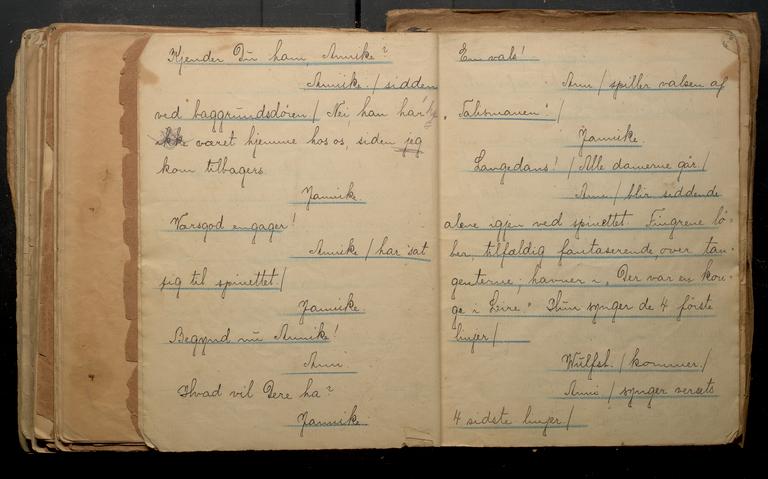 Kjender Du ham, Annike?
Annike / sidden
ved baggrundsdören / Nei, han har
ikke været hjemme hos os, siden jeg
kom tilbagers
Jannike.
Værsgod engager!
Annike / har sat
sig til spinettet. /
Jannike.
Begynd nu Annike!
Anni.
Hvad vil Dere ha?
Jannike.
En vals!
Ann / spiller valsen af
„Talismanen". /
Jannike.
Langedans! / Alle damerne går. /
Anni / blir siddende
alene igjen ved spinettet. Fingrene lö-
ber, tilfældig fantaserende, over tan-
genterne; havner i „Der var en kon-
ge i Leire". Hun synger de 4 förste
linjer /
Wulfst. / kommer. /
Anni / synger versets
4 sidste linjer /